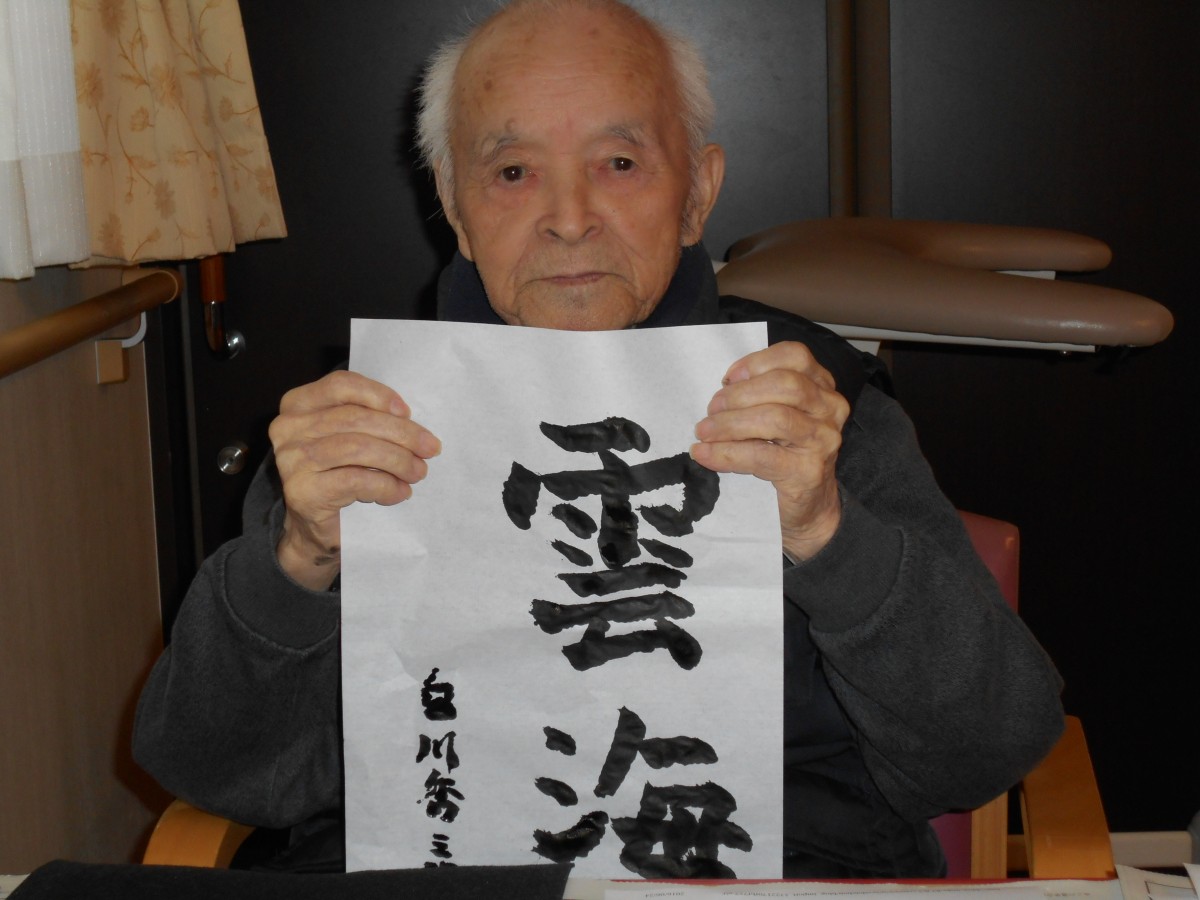 雲海
白川秀三